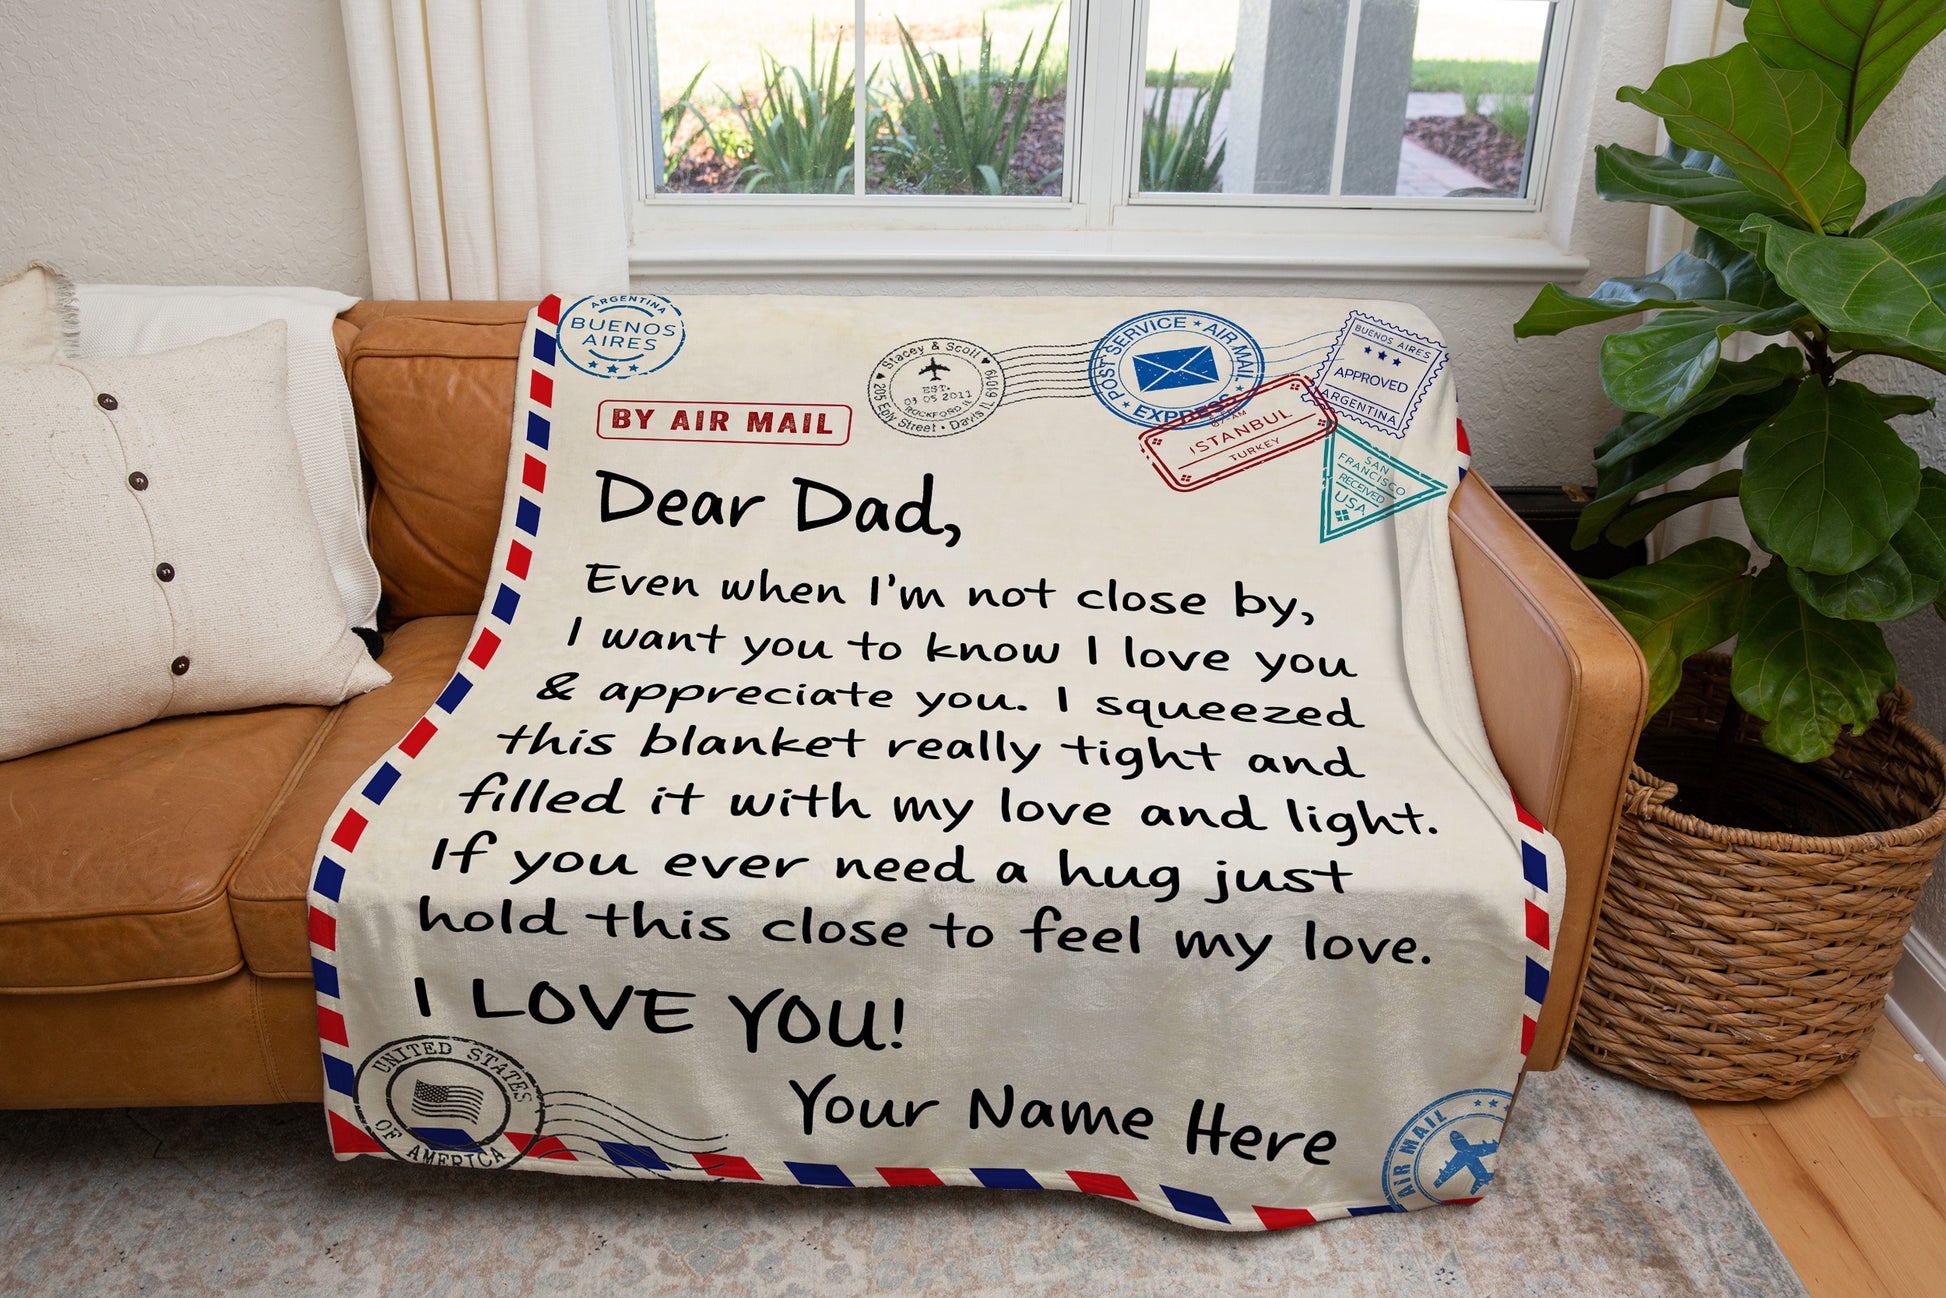 ARGENTINA
BUENOS
AIRES
Stacey & Scott
205 Edny Street • Davis IL 61019
EST.
03 05 2011
ROCKFORD IL
POST SERVICE ★ AIR MAIL
★ EXPRESS ★
BUENOS AIRES
APPROVED
ARGENTINA
ISTANBUL
TURKEY
SAN
FRANCISCO
RECEIVED
USA
BY AIR MAIL
Dear Dad,
Even when I'm not close by,
I want you to know I love you
& appreciate you. I squeezed
this blanket really tight and
filled it with my love and light.
If you ever need a hug just
hold this close to feel my love.
I LOVE YOU!
Your Name Here
UNITED STATES
OF AMERICA
AIR MAIL